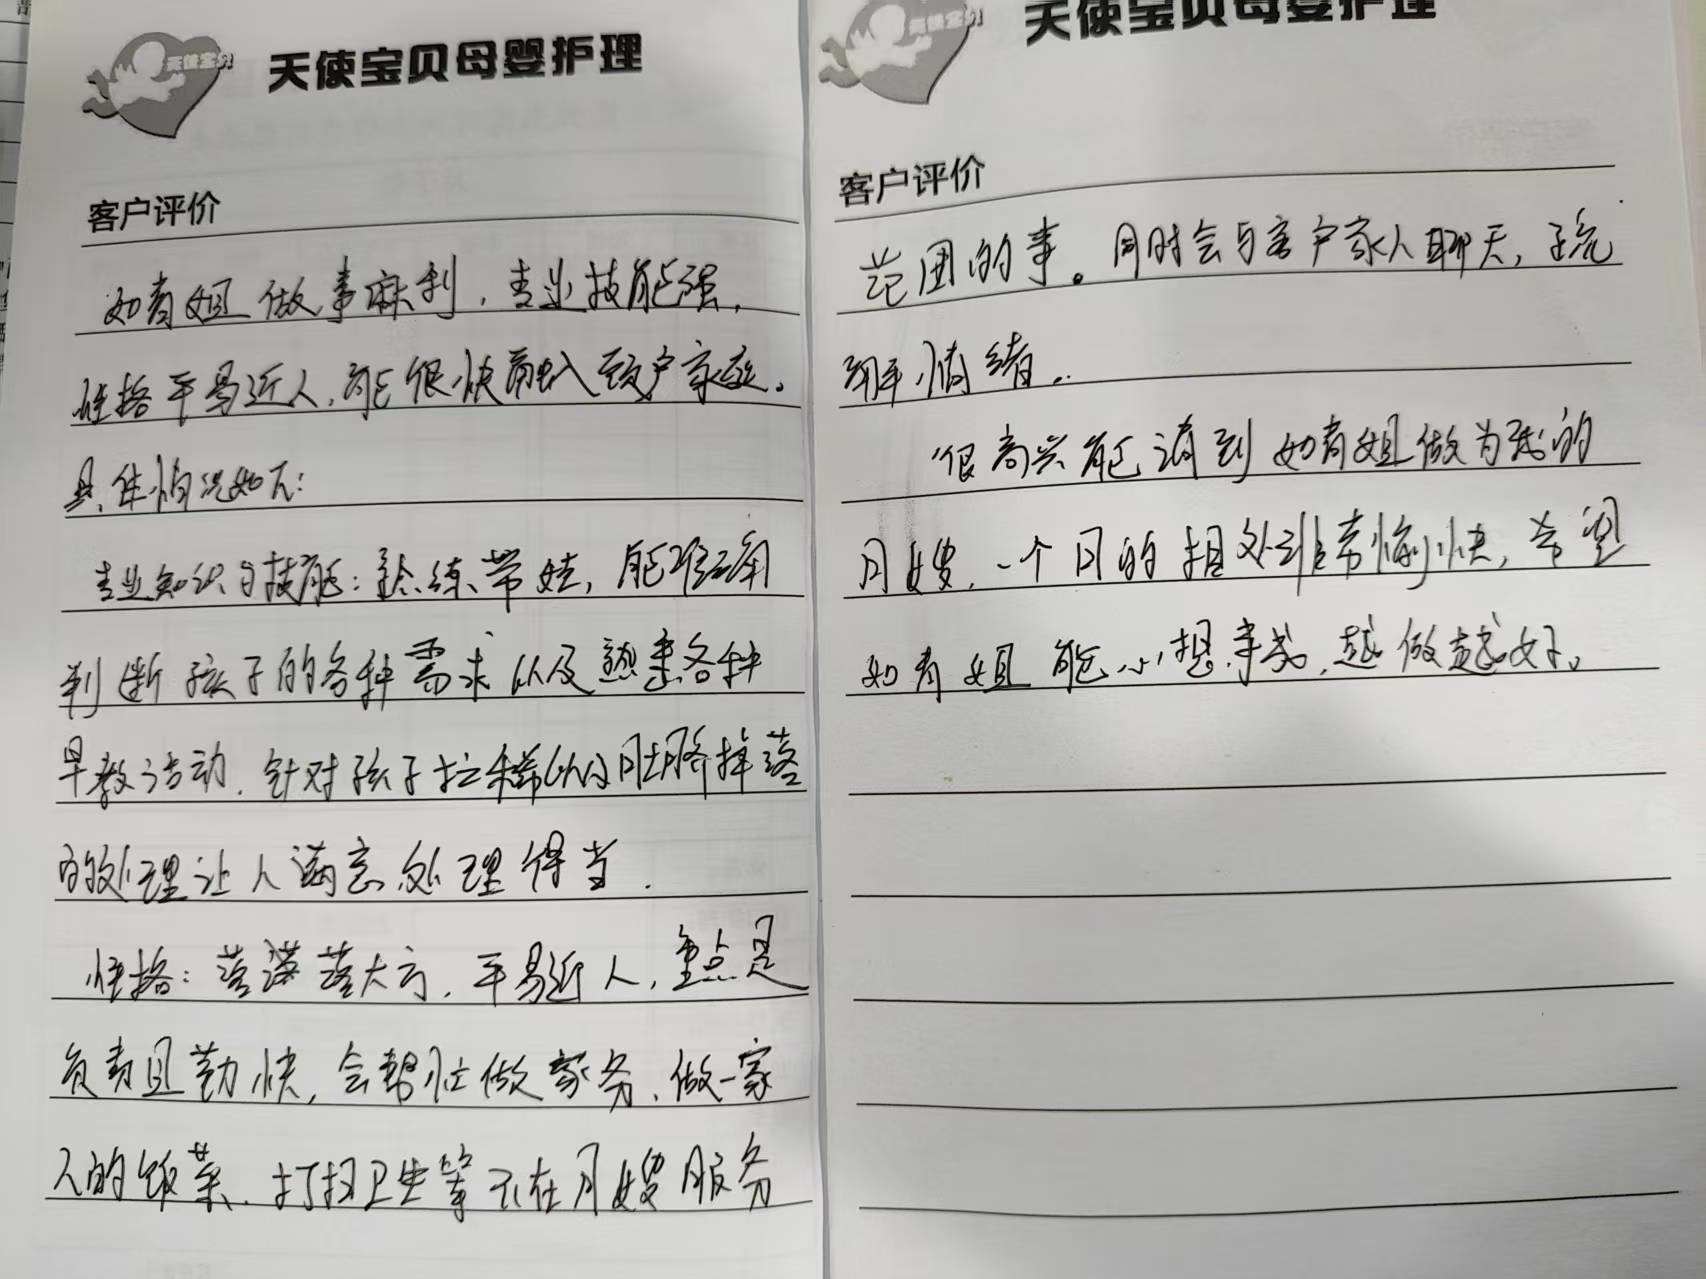 天使宝贝
天使宝贝母婴护理
客户评价
如有姐做事麻利，专业技能强，
性格平易近人，能很快融入顾户家庭。
具体情况如下：
专业知识与技能：熟练带娃，能准确
判断孩子的各种需求以及熟悉各种
早教活动．针对孩子拉稀以及肚脐掉落
的处理让人满意处理得当．
性格：落落大方，平易近人，重点是
负责且勤快，会帮忙做家务，做一家
人的饭菜，打扫卫生等不在月嫂服务
天使宝贝
天使宝贝母婴护理
客户评价
范围的事。同时会与客户家人聊天，疏
解情绪。
很高兴能请到如有姐做为我的
月嫂，一个月的相处非常愉快，希望
如有姐能心想事成，越做越好。